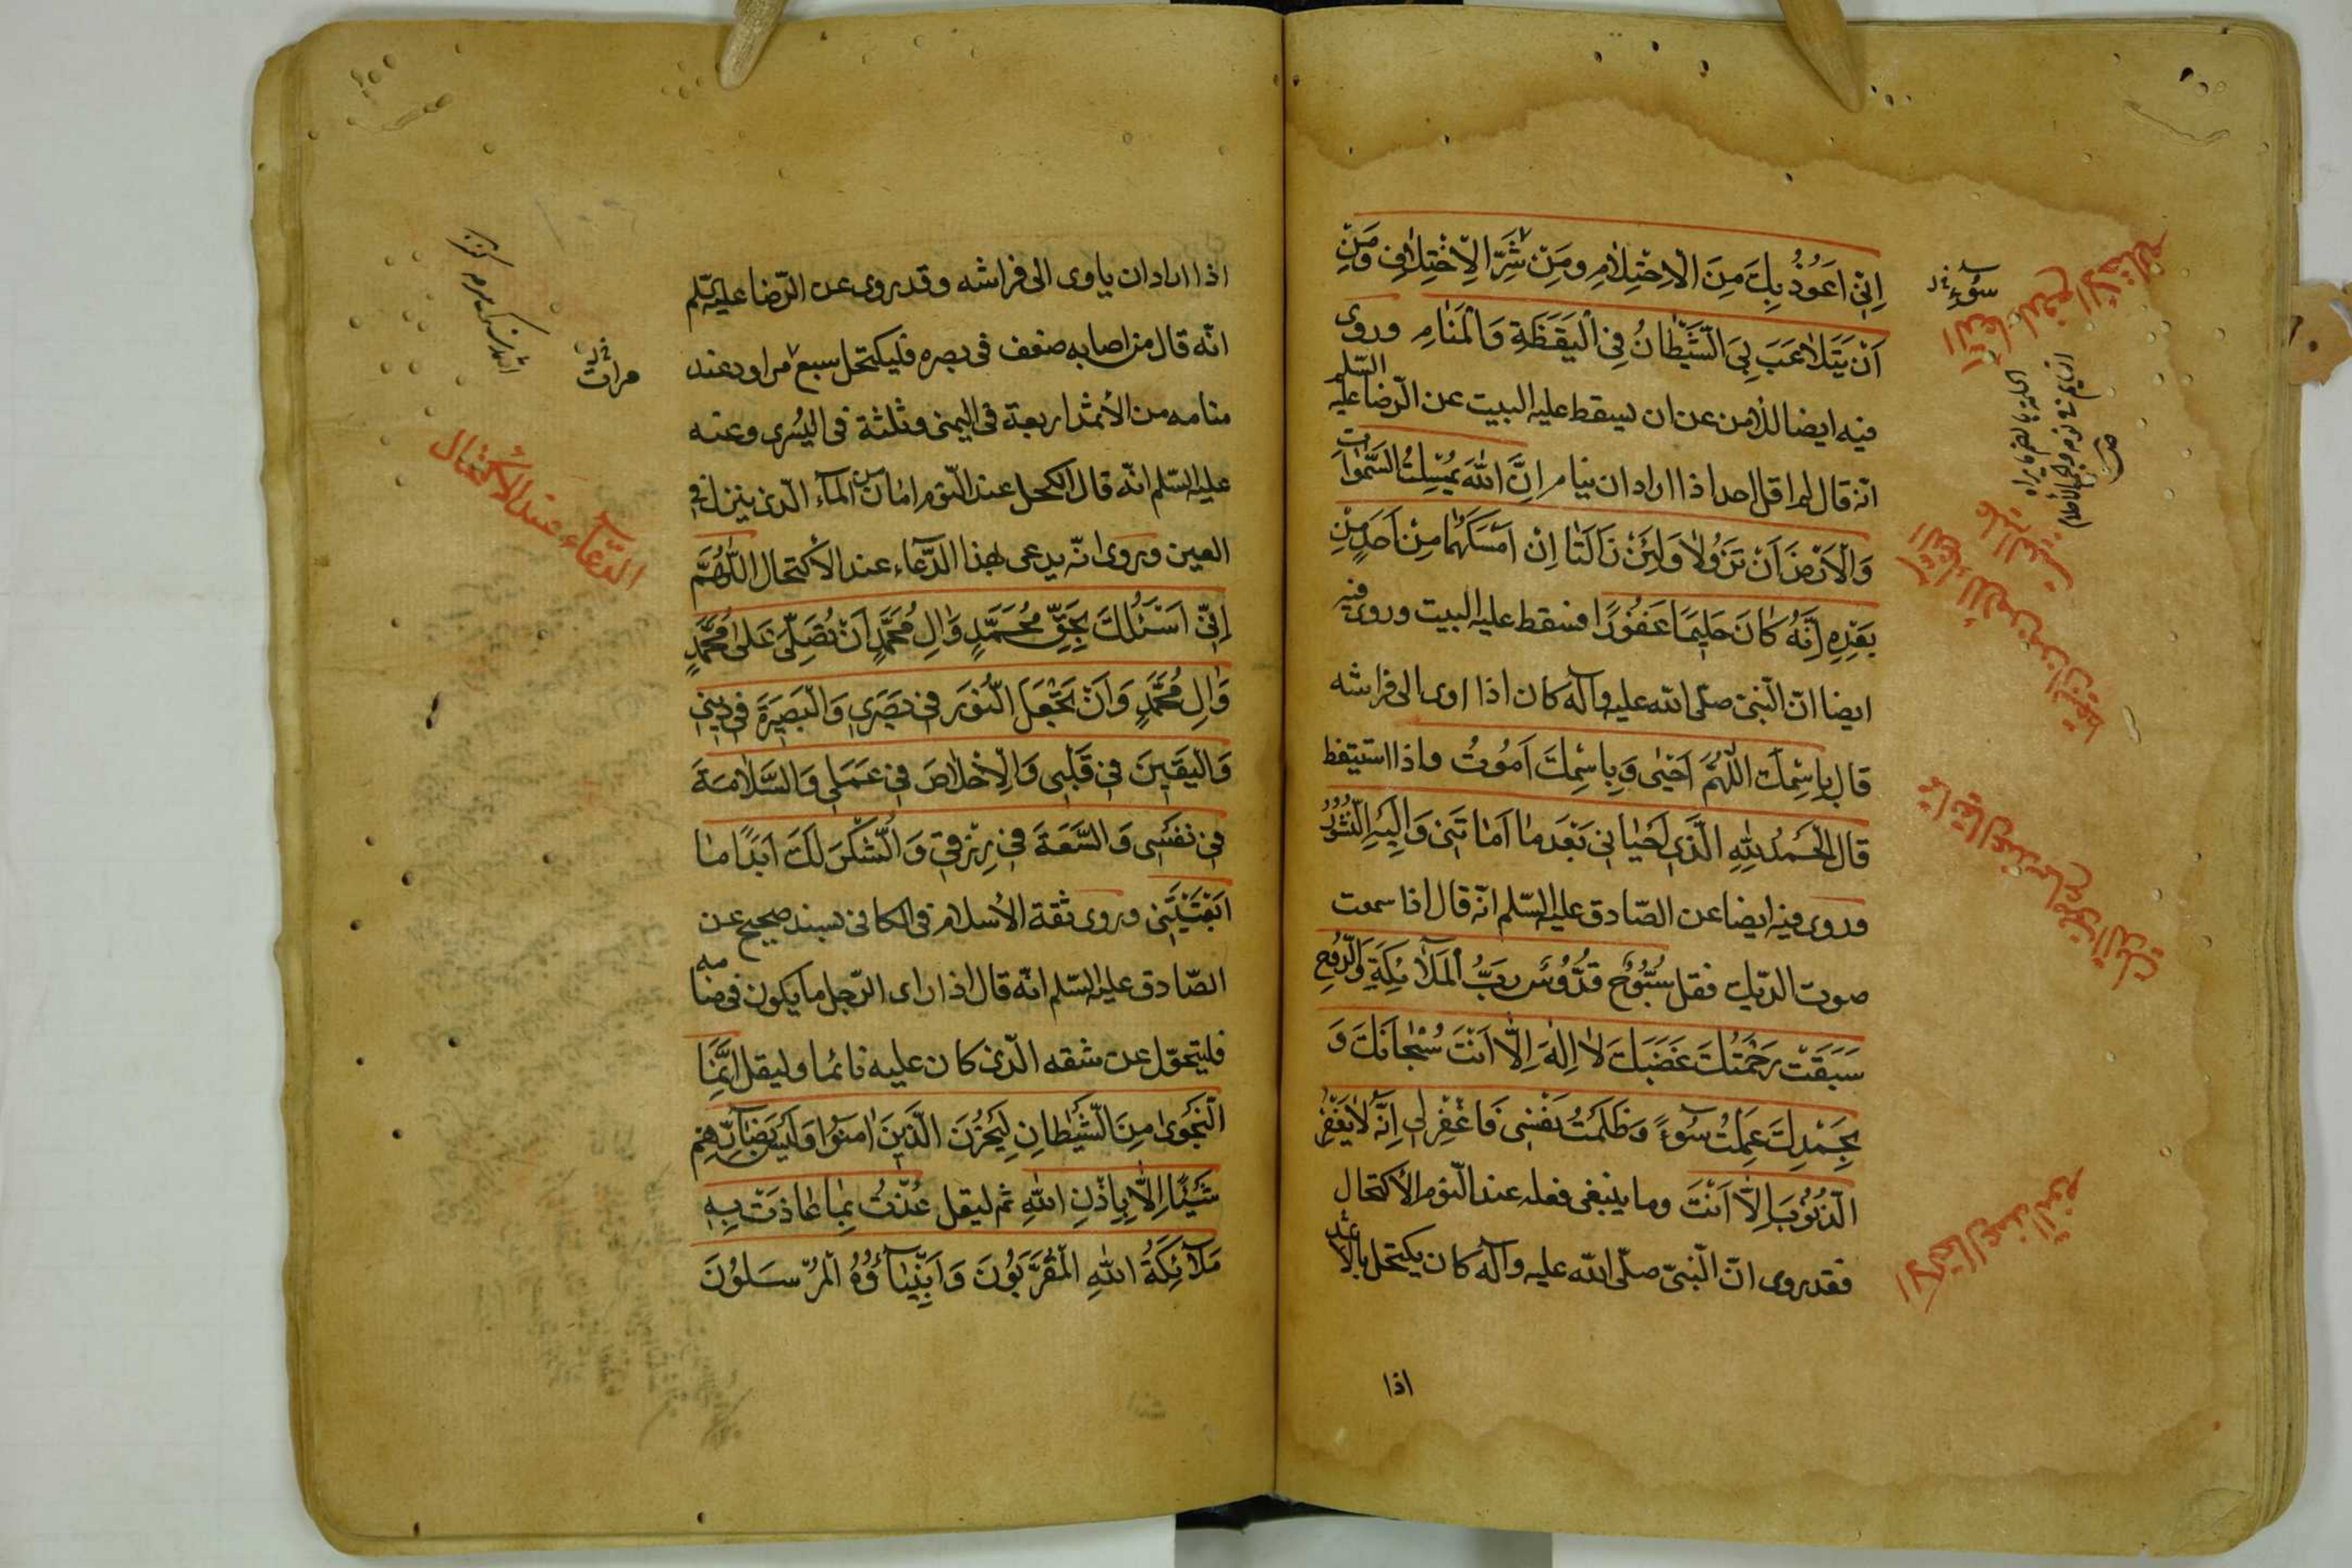 اِنّى اَعُوذُ بِكَ مِنَ الْاِحْتِلٰامِ ومِنْ شَرِّ الْاِحْتِلٰامِ وَمِنْ
اَنْ يَتَلاٰعَبَ بِىَ الشَّيْطٰانُ فِى الْيَقَظَةِ وَالْمَنٰامِ وروى
فيه ايضا للأمن عن ان يسقط عليه البيت عن الرّضا عليه السّلم
انّه قال لم اقل احد اذا اراد ان ينام اِنَّ اللّٰهَ يُمْسِكُ السَّمٰوٰاتِ
وَالْاَرْضَ اَنْ تَزُولاٰ وَلَئِنْ زٰالَتٰا اِنْ اَمْسَكَهُمٰا مِنْ اَحَدٍ مِنْ
بَعْدِهِ اِنَّهُ كٰانَ حَلِيمًا غَفُورًا فسقط عليه البيت وروى فيه
ايضا انّ النّبىّ صلّى اللّه عليه وآله كان اذا اوى الى فراشه
قال بِاسْمِكَ اللّٰهُمَّ اَحْيٰى وَبِاسْمِكَ اَمُوتُ واذا استيقظ
قال اَلْحَمْدُ لِلّٰهِ الَّذِى اَحْيٰانِى بَعْدَ مٰا اَمٰاتَنِى وَاِلَيْهِ النُّشُورُ
وروى فيه ايضا عن الصّادق عليه السّلم انّه قال اذا سمعت
صوت الدّيك فقل سُبُّوحٌ قُدُّوسٌ رَبُّ الْمَلاٰئِكَةِ وَالرُّوحِ
سَبَقَتْ رَحْمَتُكَ غَضَبَكَ لاٰ اِلٰهَ اِلاّٰ اَنْتَ سُبْحٰانَكَ وَ
بِحَمْدِكَ عَمِلْتُ سُوءً وَظَلَمْتُ نَفْسِى فَاغْفِرْ لِى اِنَّهُ لاٰ يَغْفِرُ
الذُّنُوبَ اِلاّٰ اَنْتَ وما ينبغى فعله عند النّوم الاكتحال
فقد روى انّ النّبىّ صلّى اللّه عليه وآله كان يكتحل بالاثمد
اذا
سُوءِ
الدّعاء لدفع الاحتلام
الاكتحال عند النوم
اذا اراد ان ياوى الى فراشه وقد روى عن الرّضا عليه السّلم
انّه قال من اصابه ضعف فى بصره فليكتحل سبع مراود عند
منامه من الأثمد اربعة فى اليمنى وثلثة فى اليسرى وعنه
عليه السّلم انّه قال الكحل عند النّوم امان من الماء الّذى ينزل فى
العين وروى انّه يدعى بهذا الدّعاء عند الاكتحال اَللّٰهُمَّ
اِنّى اَسْئَلُكَ بِحَقِّ مُحَمَّدٍ وَاٰلِ مُحَمَّدٍ اَنْ تُصَلِّىَ عَلىٰ مُحَمَّدٍ
وَاٰلِ مُحَمَّدٍ وَاَنْ تَجْعَلَ النُّورَ فِى بَصَرِى وَالْبَصِيرَةَ فِى دِينِى
وَالْيَقِينَ فِى قَلْبِى وَالْاِخْلاٰصَ فِى عَمَلِى وَالسَّلاٰمَةَ
فِى نَفْسِى وَالسَّعَةَ فِى رِزْقِى وَالشُّكْرَ لَكَ اَبَدًا مٰا
اَبْقَيْتَنِى وروى ثقة الأسلام فى الكافى بسند صحيح عن
الصّادق عليه السّلم انّه قال اذا راى الرّجل ما يكون فى منامه
فليتحوّل عن شقه الّذى كان عليه نائما وليقل اِنَّمَا
النَّجْوىٰ مِنَ الشَّيْطٰانِ لِيَحْزُنَ الَّذِينَ اٰمَنُوا وَلَيْسَ بِضٰارِّهِمْ
شَيْئًا اِلاّٰ بِاِذْنِ اللّٰهِ ثم ليقل عُذْتُ بِمٰا عٰاذَتْ بِهِ
مَلاٰئِكَةُ اللّٰهِ الْمُقَرَّبُونَ وَاَنْبِيٰاؤُهُ الْمُرْسَلُونَ
مرات
الدّعاء عند الاكتحال